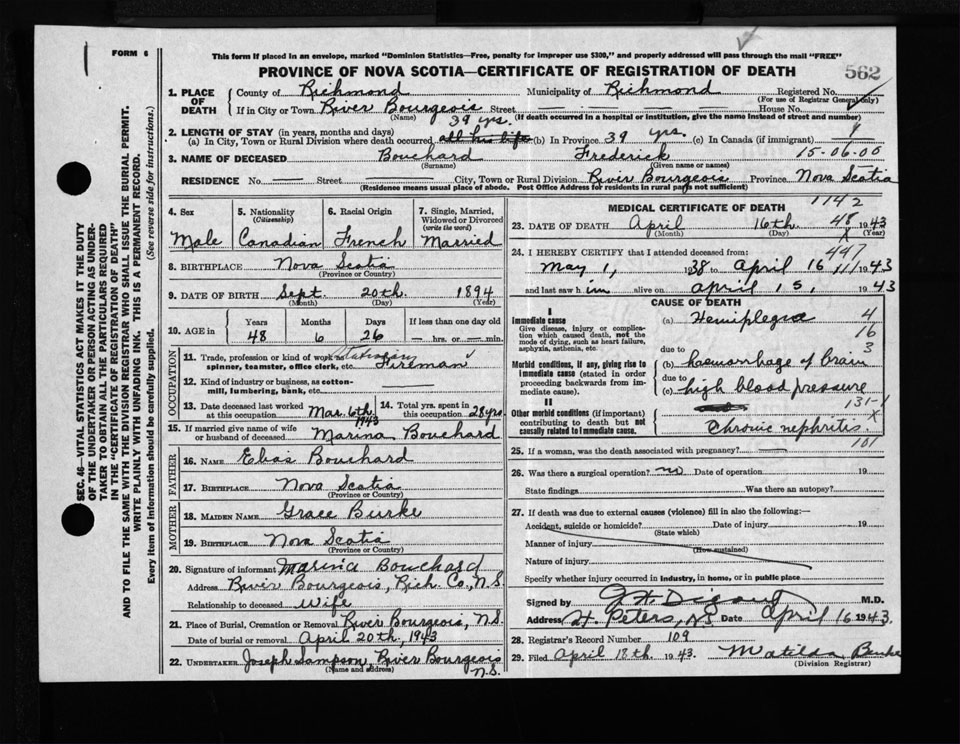 FORM 6
This form if placed in an envelope, marked "Dominion Statistics—Free, penalty for improper use $300," and properly addressed will pass through the mail "FREE"
562
PROVINCE OF NOVA SCOTIA—CERTIFICATE OF REGISTRATION OF DEATH
1. PLACE OF DEATH County of Richmond Municipality of Richmond Registered No.
(For use of Registrar General only)
If in City or Town River Bourgeois Street House No.
(Name) (If death occurred in a hospital or institution, give the name instead of street and number)
39 yrs.
2. LENGTH OF STAY (in years, months and days)
(a) In City, Town or Rural Division where death occurred all his life (b) In Province 39 yrs. (c) In Canada (if immigrant)
3. NAME OF DECEASED Bouchard Frederick 15-06-00
(Surname) (Given name or names)
RESIDENCE No. — Street — City, Town or Rural Division River Bourgeois Province Nova Scotia
(Residence means usual place of abode. Post Office Address for residents in rural parts not sufficient)
4. Sex Male
5. Nationality (Citizenship) Canadian
6. Racial Origin French
7. Single, Married, Widowed or Divorced (write the word) Married
8. BIRTHPLACE Nova Scotia
(Province or Country)
9. DATE OF BIRTH Sept. 20th. 1894
(Month) (Day) (Year)
10. AGE in Years 48 Months 6 Days 26 If less than one day — hrs. or — min.
OCCUPATION
11. Trade, profession or kind of work as spinner, teamster, office clerk, etc. Stationary Fireman
12. Kind of industry or business, as cotton-mill, lumbering, bank, etc.
13. Date deceased last worked at this occupation Mar. 6th. 1943
14. Total yrs. spent in this occupation 28 yrs.
15. If married give name of wife or husband of deceased Marina Bouchard
FATHER
16. NAME Elias Bouchard
17. BIRTHPLACE Nova Scotia
(Province or Country)
MOTHER
18. MAIDEN NAME Grace Burke
19. BIRTHPLACE Nova Scotia
(Province or Country)
20. Signature of informant Marina Bouchard
Address River Bourgeois, Rich. Co., N.S.
Relationship to deceased Wife
21. Place of Burial, Cremation or Removal River Bourgeois, N.S.
Date of burial or removal April 20th, 1943
22. UNDERTAKER Joseph Sampson, River Bourgeois N.S.
(Name and address)
1142
MEDICAL CERTIFICATE OF DEATH
23. DATE OF DEATH April 16th 1943
(Month) (Day) (Year)
48
24. I HEREBY CERTIFY that I attended deceased from:
447
May 1, 1938 to April 16 1943
and last saw him alive on April 15, 1943
CAUSE OF DEATH
I
Immediate cause (a) Hemiplegia 4
Give disease, injury or complication which caused death, not the mode of dying, such as heart failure, asphyxia, asthenia, etc.
16
3
due to
Morbid conditions, if any, giving rise to immediate cause (stated in order proceeding backwards from immediate cause). (b) haemorrhage of brain
due to
(c) high blood pressure
131-1
II
Other morbid conditions (if important) contributing to death but not causally related to immediate cause.
Chronic nephritis
X
101
25. If a woman, was the death associated with pregnancy? —
26. Was there a surgical operation? no Date of operation 19
State findings Was there an autopsy?
27. If death was due to external causes (violence) fill in also the following:—
Accident, suicide or homicide? Date of injury 19
(State which)
Manner of injury
(How sustained)
Nature of injury
Specify whether injury occurred in industry, in home, or in public place
Signed by M.D.
Address St. Peters, NS Date April 16 1943
28. Registrar's Record Number 109
29. Filed April 18th 1943. Matilda Burke
(Division Registrar)
SEC. 46—VITAL STATISTICS ACT MAKES IT THE DUTY
OF THE UNDERTAKER OR PERSON ACTING AS UNDER-
TAKER TO OBTAIN ALL THE PARTICULARS REQUIRED
IN THE "CERTIFICATE OF REGISTRATION OF DEATH"
AND TO FILE THE SAME WITH THE DIVISION REGISTRAR WHO SHALL ISSUE THE BURIAL PERMIT.
WRITE PLAINLY WITH UNFADING INK. THIS IS A PERMANENT RECORD.
Every item of information should be carefully supplied. (See reverse side for instructions.)